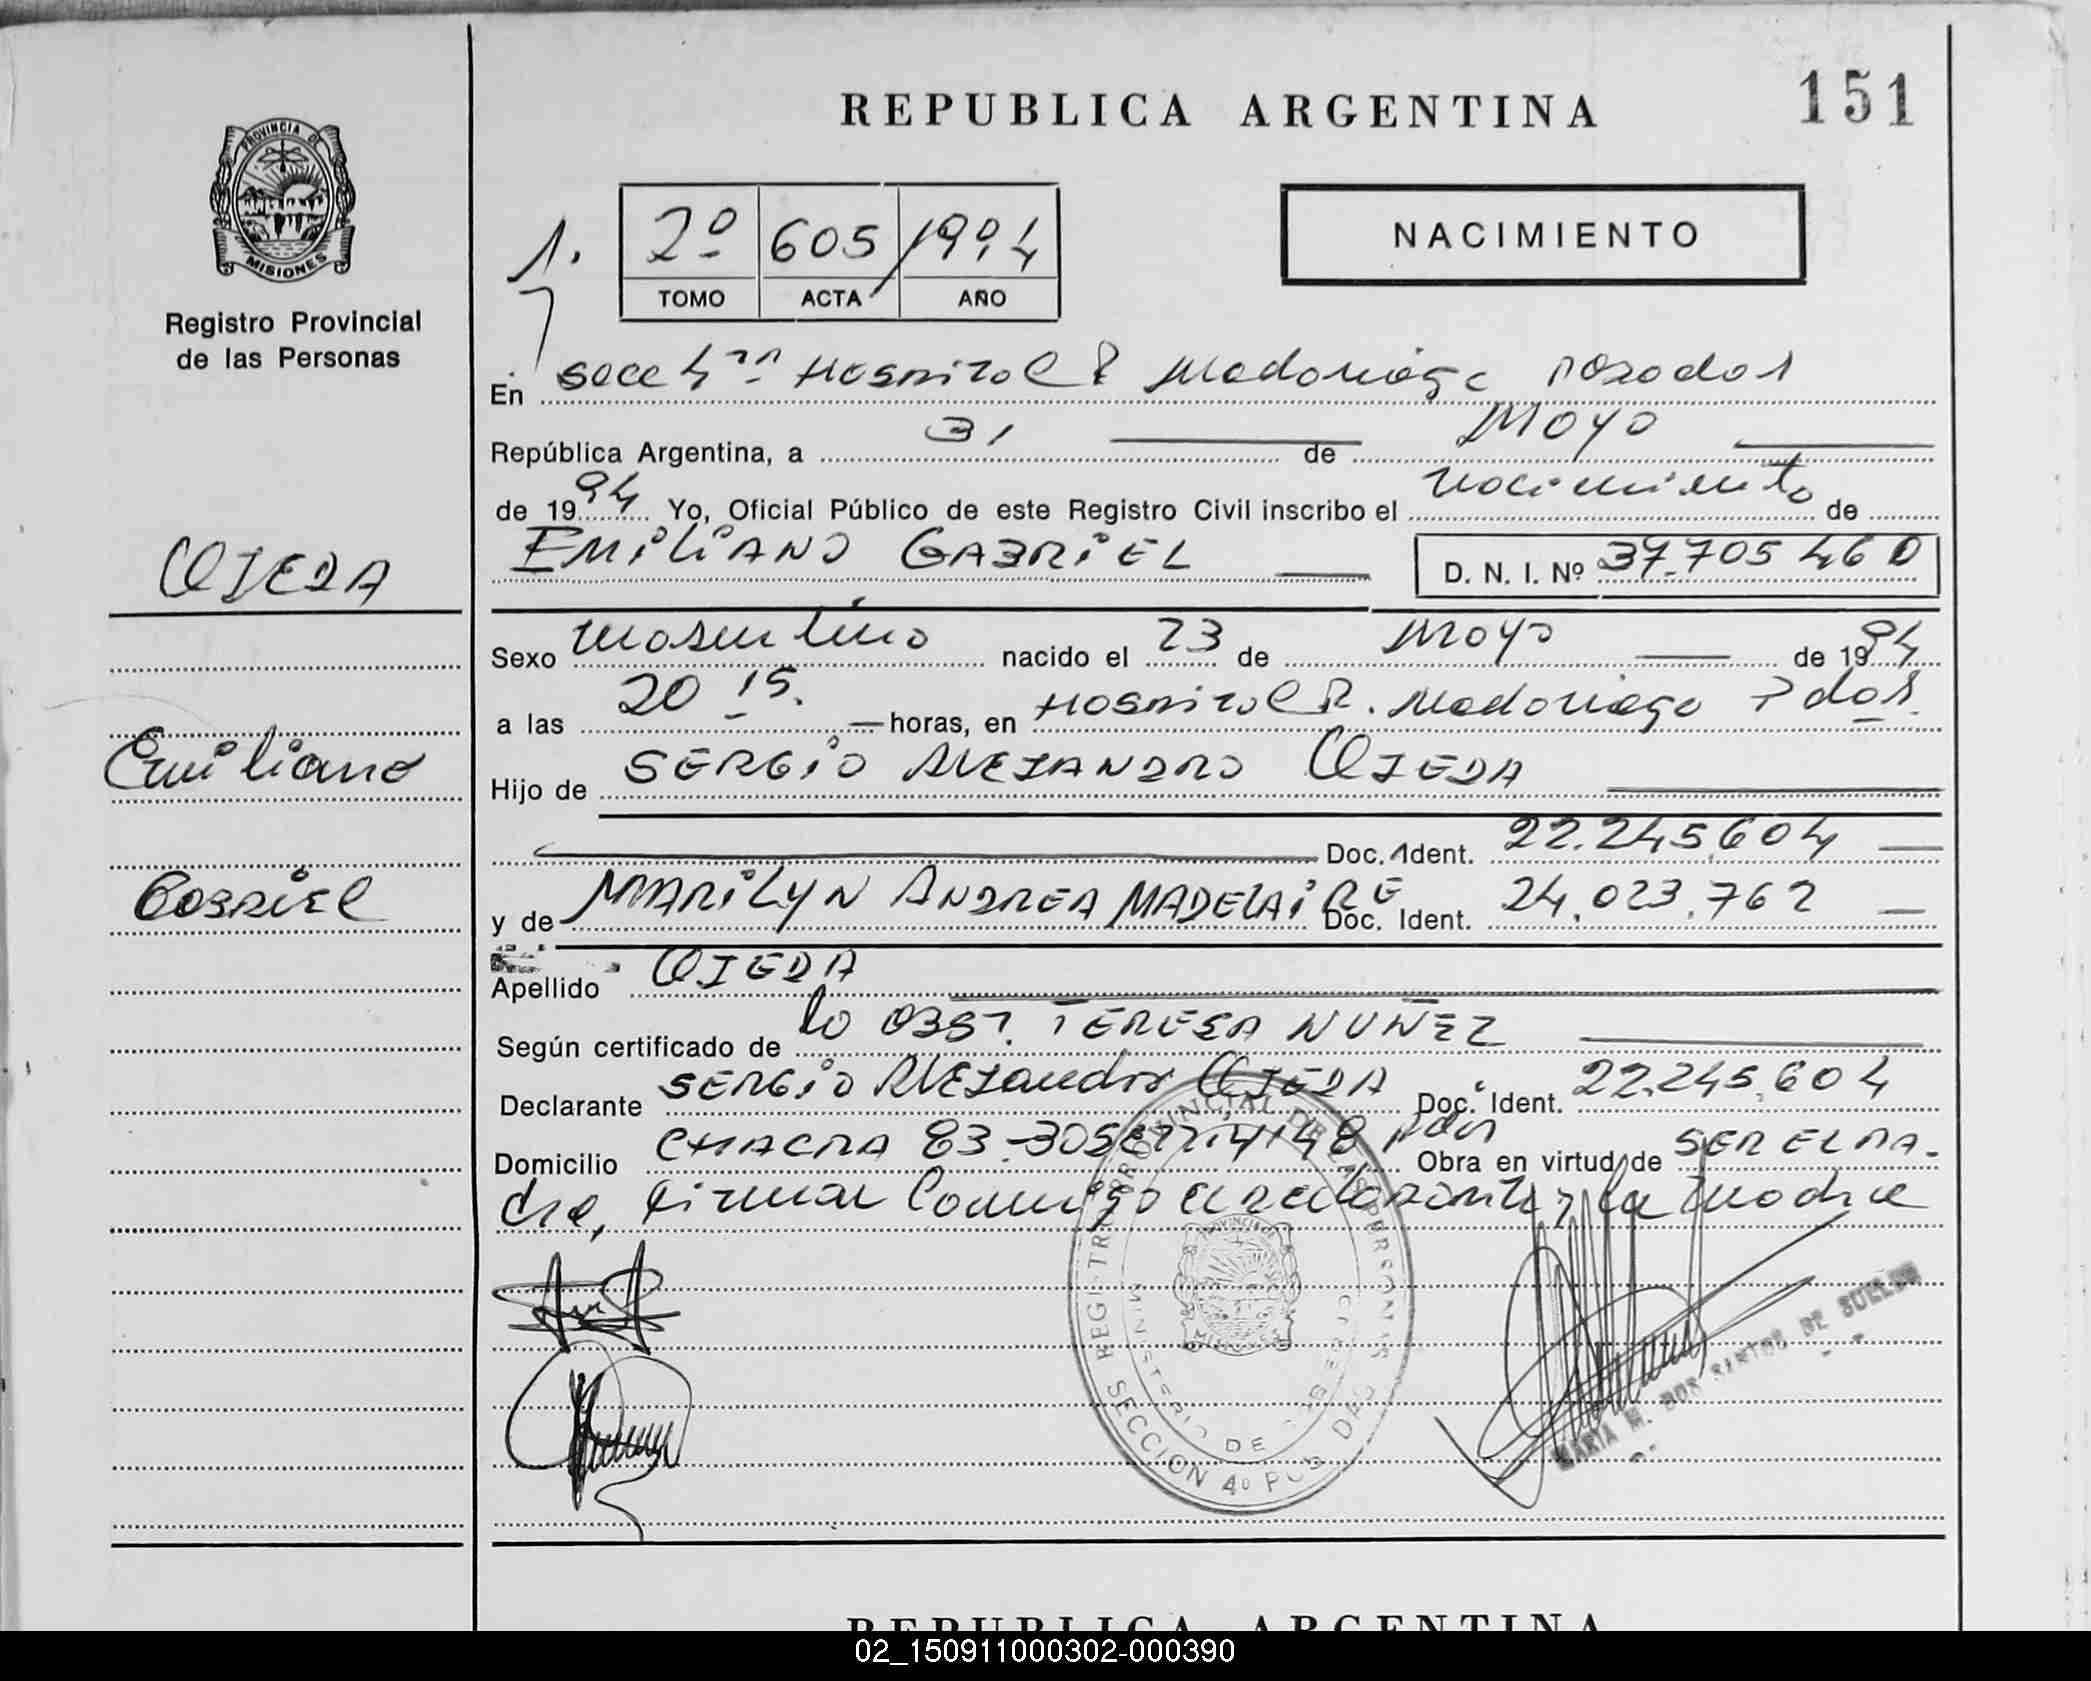 REPUBLICA ARGENTINA
151
PROVINCIA DE
MISIONES
Registro Provincial
de las Personas
1.
2º 605 1994
TOMO ACTA AÑO
NACIMIENTO
En Secc 4ta Hospital R Madariaga Posadas
República Argentina, a 31 de Mayo
de 1994 Yo, Oficial Público de este Registro Civil inscribo el nacimiento de
EMILIANO GABRIEL D. N. I. Nº 37.705 460
OJEDA
Sexo Masculino nacido el 23 de Mayo de 1994
a las 20 15. horas, en Hospital R. Madariaga Pdas.
Emiliano
Hijo de SERGIO ALEJANDRO OJEDA
Doc. Ident. 22.245.604
Gabriel
y de MARILYN ANDREA MADELAIRE Doc. Ident. 24.023.762
Apellido OJEDA
Según certificado de la OBST. TERESA NUÑEZ
Declarante SERGIO ALEJandro OJEDA Doc. Ident. 22.245.604
Domicilio CHACRA 83 - Pdas Obra en virtud de SER EL PA-
dre, firman Conmigo el declarante y la madre
REGISTRO PROVINCIAL DE LAS PERSONAS
MINISTERIO DE
PROVINCIA
MISIONES
SECCION 4º POSADAS
MARIA M. DOS SANTOS DE
REPUBLICA ARGENTINA
02_150911000302-000390